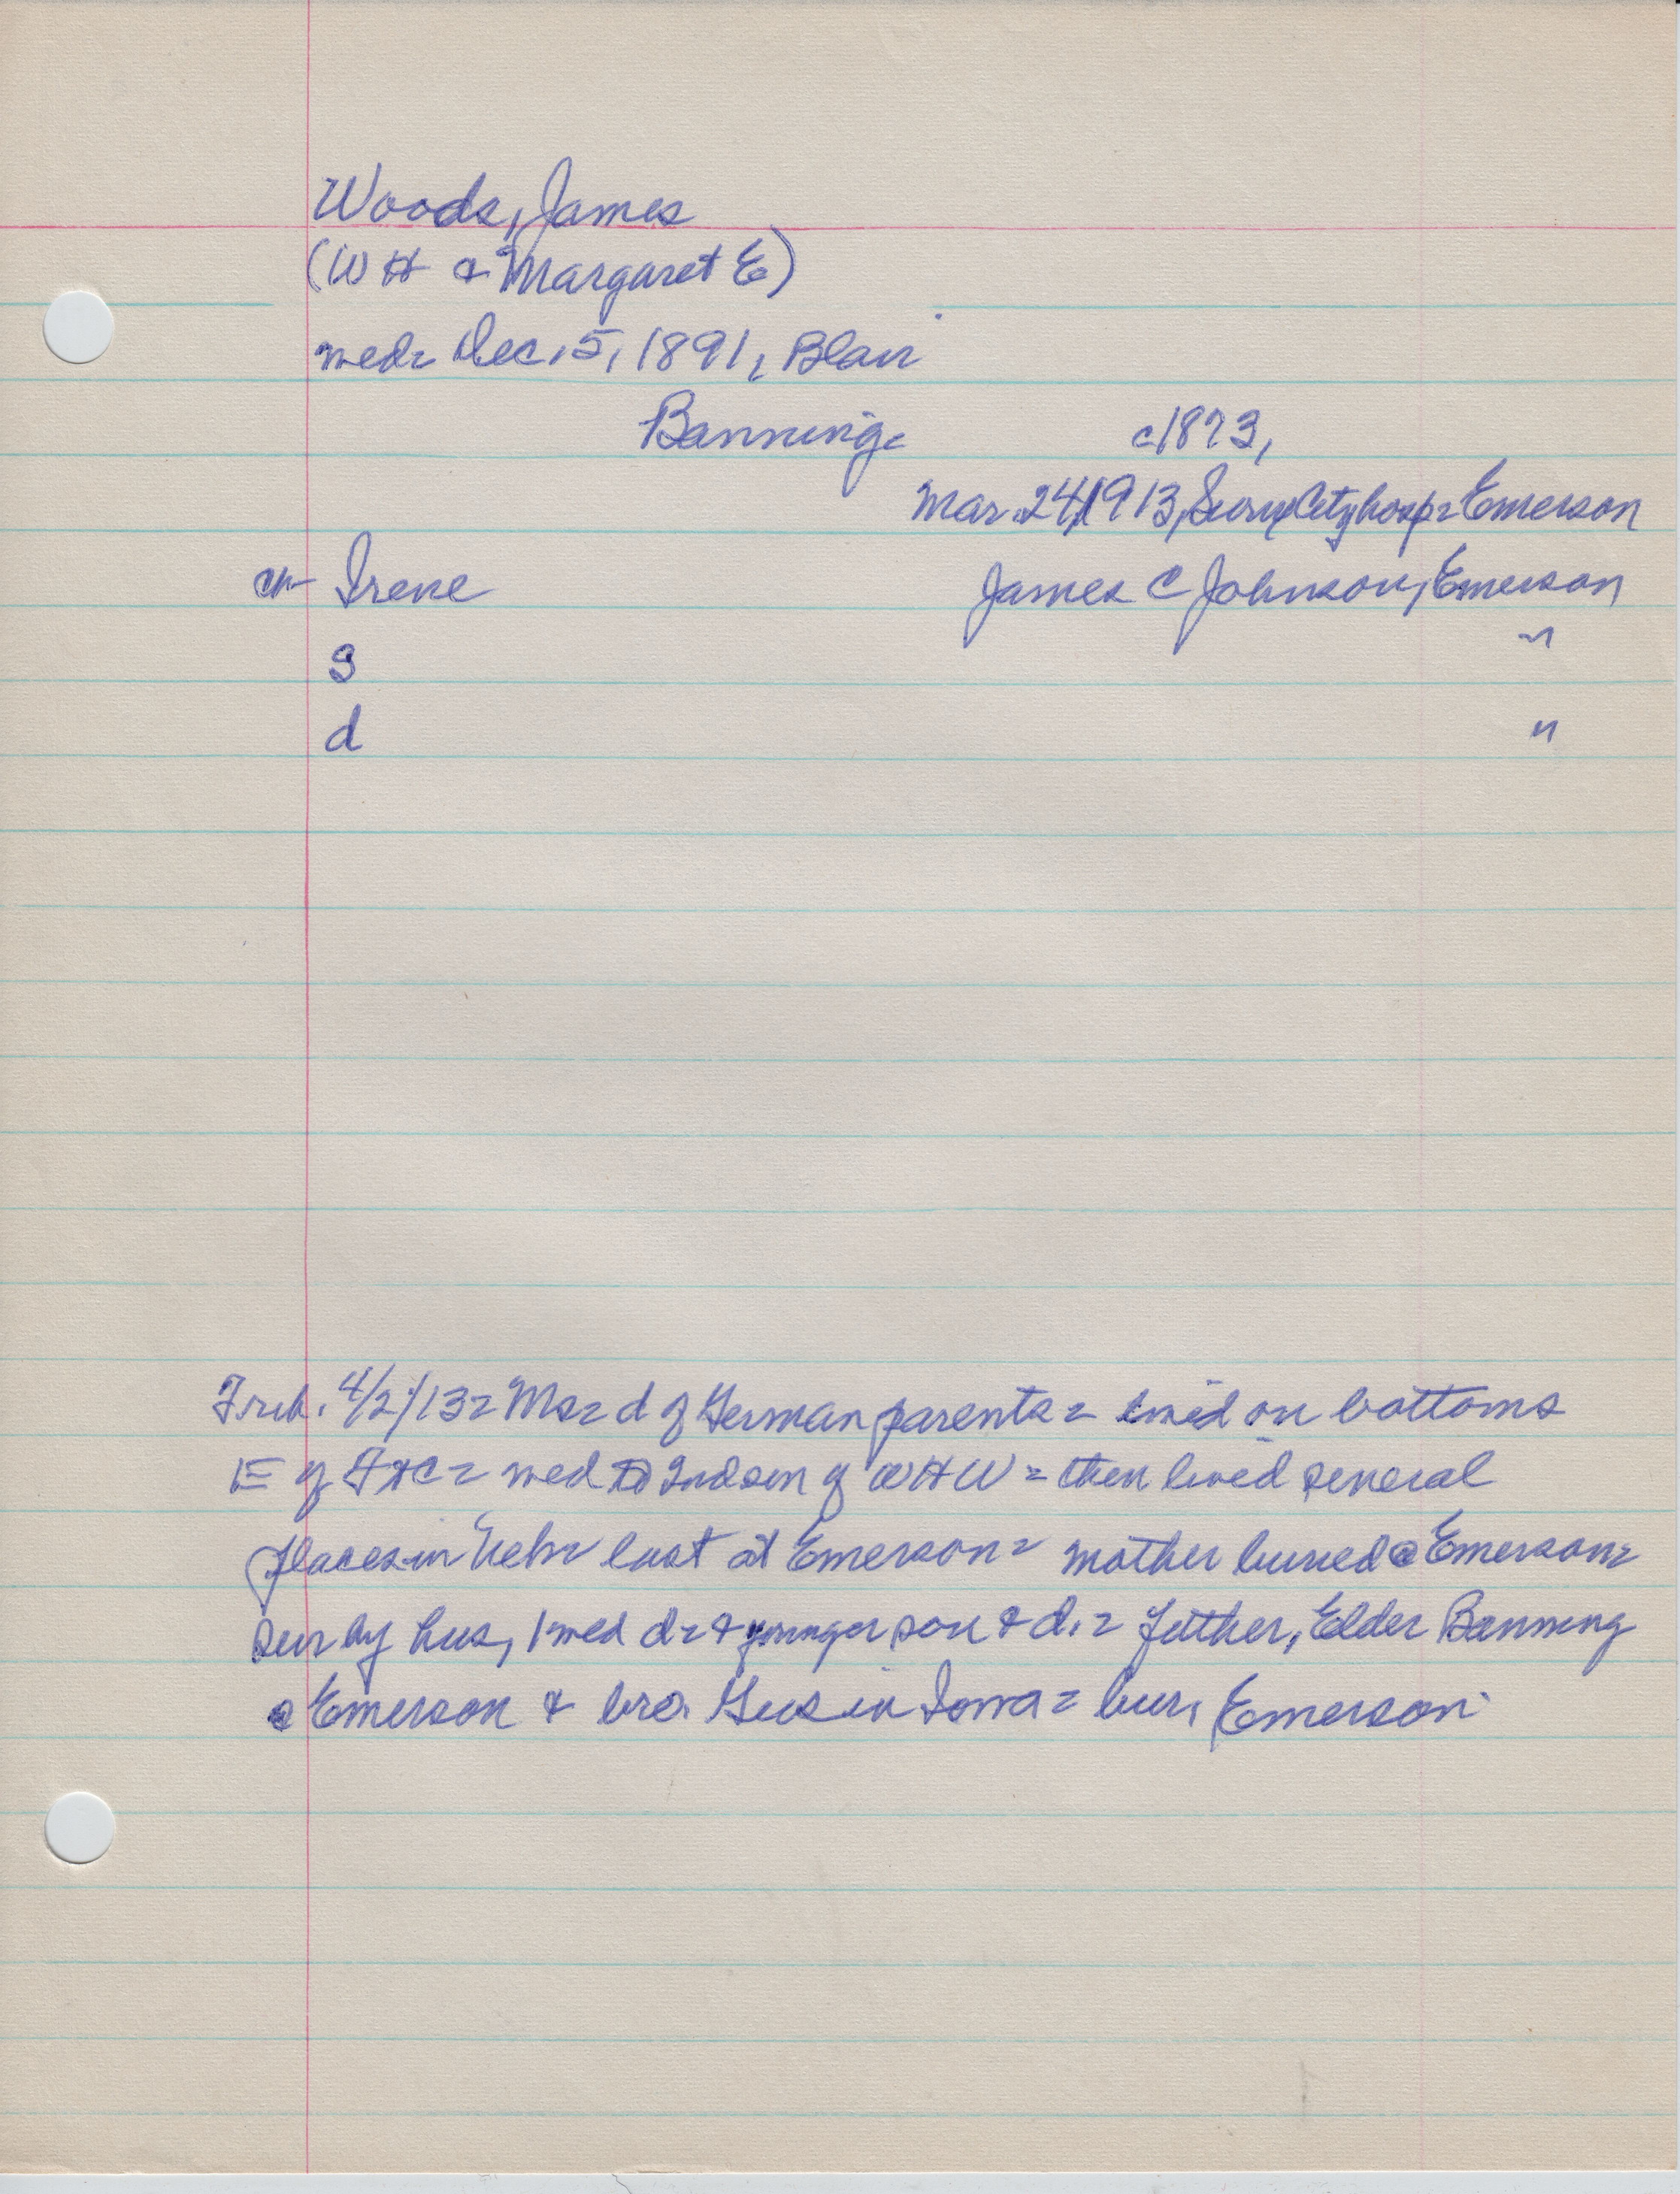 Woods, James
(WH & Margaret E)
med= Dec. 5, 1891, Blair
Banning= c1873,
Mar. 24, 1913, Sioux City hosp= Emerson
ch- Irene James C Johnson, Emerson
s "
d "
Trib. 4/2/13= Mrs= d of German parents= lived on bottoms
E of Ft C= med to 2nd son of WHW= then lived several
places in Neb= last at Emerson= mother buried @ Emerson=
sur by hus, 1 med d= & younger son & d.= father, Elder Banning
@ Emerson & bro. Gus in Iowa= bur, Emerson